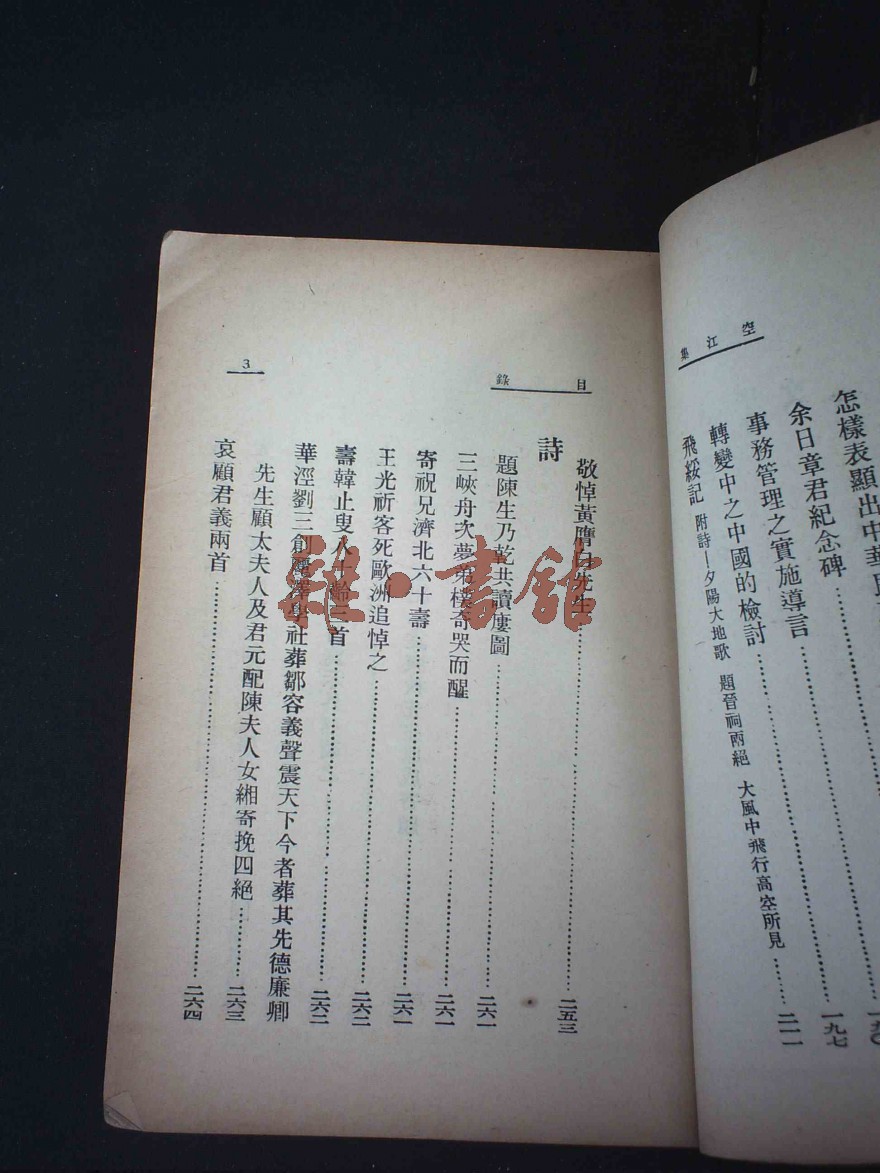 空江集
怎樣表顯出中華民
一九〇
余日章君紀念碑……一九七
事務管理之實施導言
轉變中之中國的檢討……二一一
飛綏記 附詩—夕陽大地歌 題晉祠兩絕 大風中飛行高空所見
目錄
敬悼黃膺白先生……二五三
詩
題陳生乃乾共讀廔圖……二六一
三峽舟次夢弟樸奇哭而醒……二六一
寄祝兄濟北六十壽……二六一
王光祈客死歐洲追悼之……二六二
壽韓止叟八十齡二首……二六二
華涇劉三創麗澤學社葬鄒容義聲震天下今者葬其先德廉卿
先生顧太夫人及君元配陳夫人女緗寄挽四絕……二六三
哀顧君義兩首……二六四
3
雜·書館